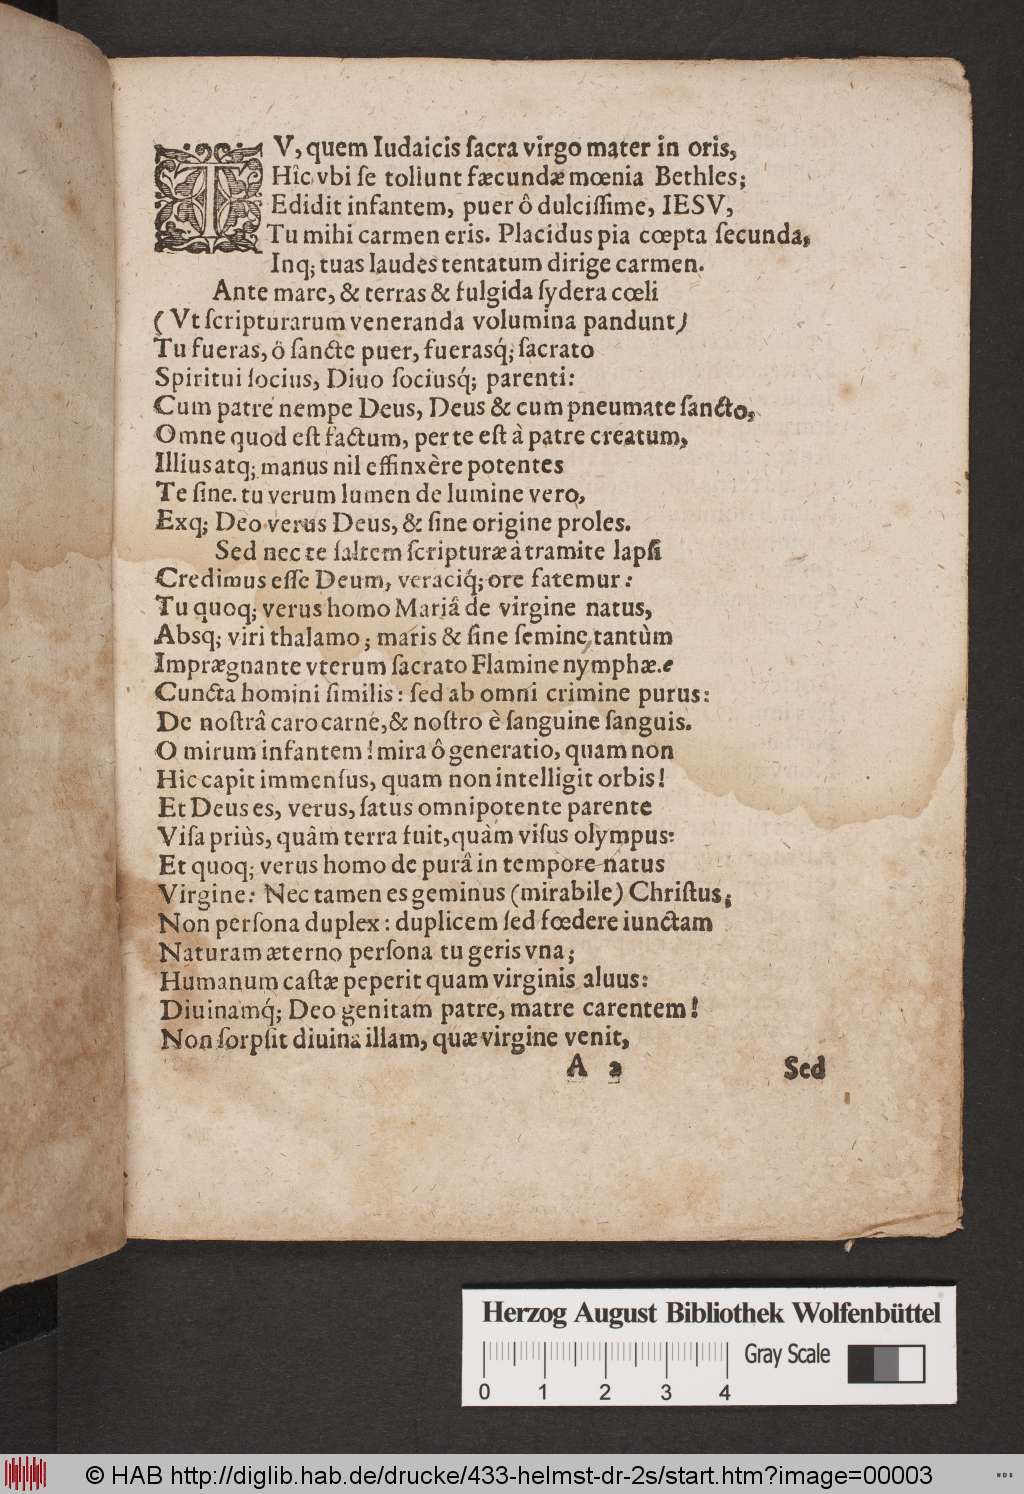 TV, quem Iudaicis ſacra virgo mater in oris,
Hîc vbi ſe tollunt fæcundæ mœnia Bethles;
Edidit infantem, puer ô dulciſſime, IESV,
Tu mihi carmen eris. Placidus pia cœpta ſecunda,
Inq; tuas laudes tentatum dirige carmen.
Ante mare, & terras & fulgida ſydera cœli
(Vt ſcripturarum veneranda volumina pandunt)
Tu fueras, ô ſancte puer, fuerasq́; ſacrato
Spiritui ſocius, Diuo ſociusq́; parenti:
Cum patre nempe Deus, Deus & cum pneumate ſancto,
Omne quod eſt factum, per te eſt à patre creatum,
Illius atq; manus nil effinxère potentes
Te ſine. tu verum lumen de lumine vero,
Exq; Deo verus Deus, & ſine origine proles.
Sed nec te ſaltem ſcripturæ à tramite lapſi
Credimus eſſe Deum, veraciq́; ore fatemur:
Tu quoq; verus homo Mariâ de virgine natus,
Absq; viri thalamo; maris & ſine ſemine, tantùm
Imprægnante vterum ſacrato Flamine nymphæ.
Cuncta homini ſimilis: ſed ab omni crimine purus:
De noſtrâ caro carne, & noſtro è ſanguine ſanguis.
O mirum infantem! mira ô generatio, quam non
Hic capit immenſus, quam non intelligit orbis!
Et Deus es, verus, ſatus omnipotente parente
Viſa priùs, quâm terra fuit, quàm viſus olympus:
Et quoq; verus homo de purâ in tempore natus
Virgine: Nec tamen es geminus (mirabile) Chriſtus;
Non perſona duplex: duplicem ſed fœdere iunctam
Naturam æterno perſona tu geris vna;
Humanum caſtæ peperit quam virginis aluus:
Diuinamq́; Deo genitam patre, matre carentem!
Non ſorpſit diuina illam, quæ virgine venit,
A 2 Sed
Herzog August Bibliothek Wolfenbüttel
Gray Scale
0 1 2 3 4
© HAB http://diglib.hab.de/drucke/433-helmst-dr-2s/start.htm?image=00003